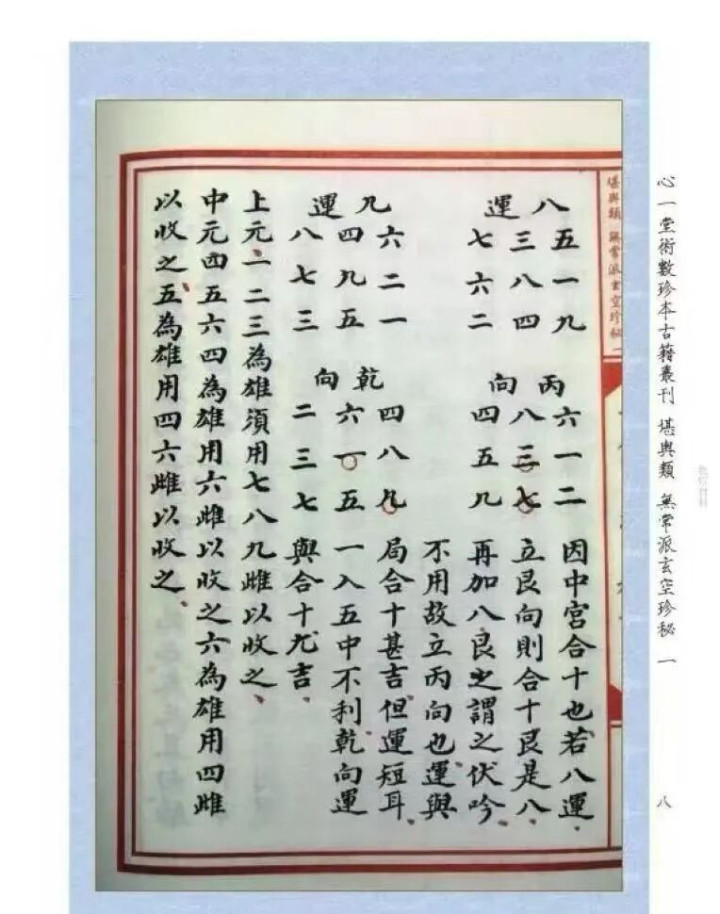 心一堂術數珍本古籍叢刊 堪輿類 無常派玄空珍秘 一
八
堪輿類 無常派玄空珍秘 一
八運
五一九
三八四
七六二
丙向
六一二
八三七
四五九
因中宮合十也若八運
立艮向則合十艮是八
再加八艮之謂之伏吟
不用故立丙向也運與
九運
六二一
四九五
八七三
乾向
四八九
六一五
二三七
局合十甚吉但運短耳
一入五中不利乾向運
與合十尤吉
上元一二三為雄須用七八九雌以收之
中元四五六四為雄用六雌以收之六為雄用四雌
以收之五為雄用四六雌以收之